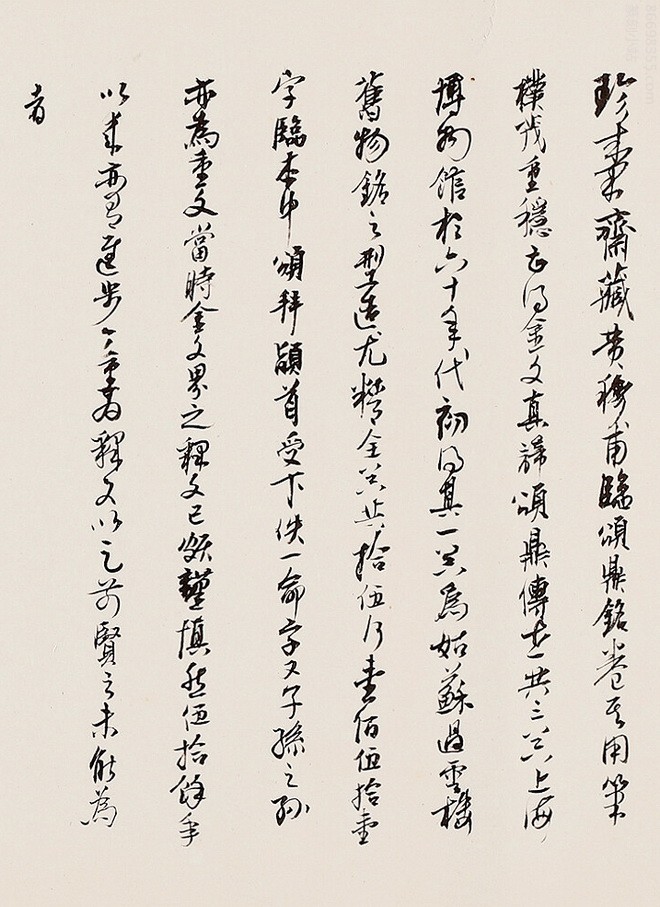 珍秦齋藏黃穆甫臨頌鼎銘卷其用筆
樸茂重穩甚得金文真諦頌鼎傳世共三器上海
博物館於六十年代初得其一器為姑蘇過雲樓
舊物銘之型這尤精全器共拾伍行壹佰伍拾壹
字臨本中頌拜頴首受下佚一命字又子孫之孫
亦為重文當時金文界之釋文已頗謹慎然伍拾餘年
以來亦有進步今重為釋文以之前賢之未能為
者